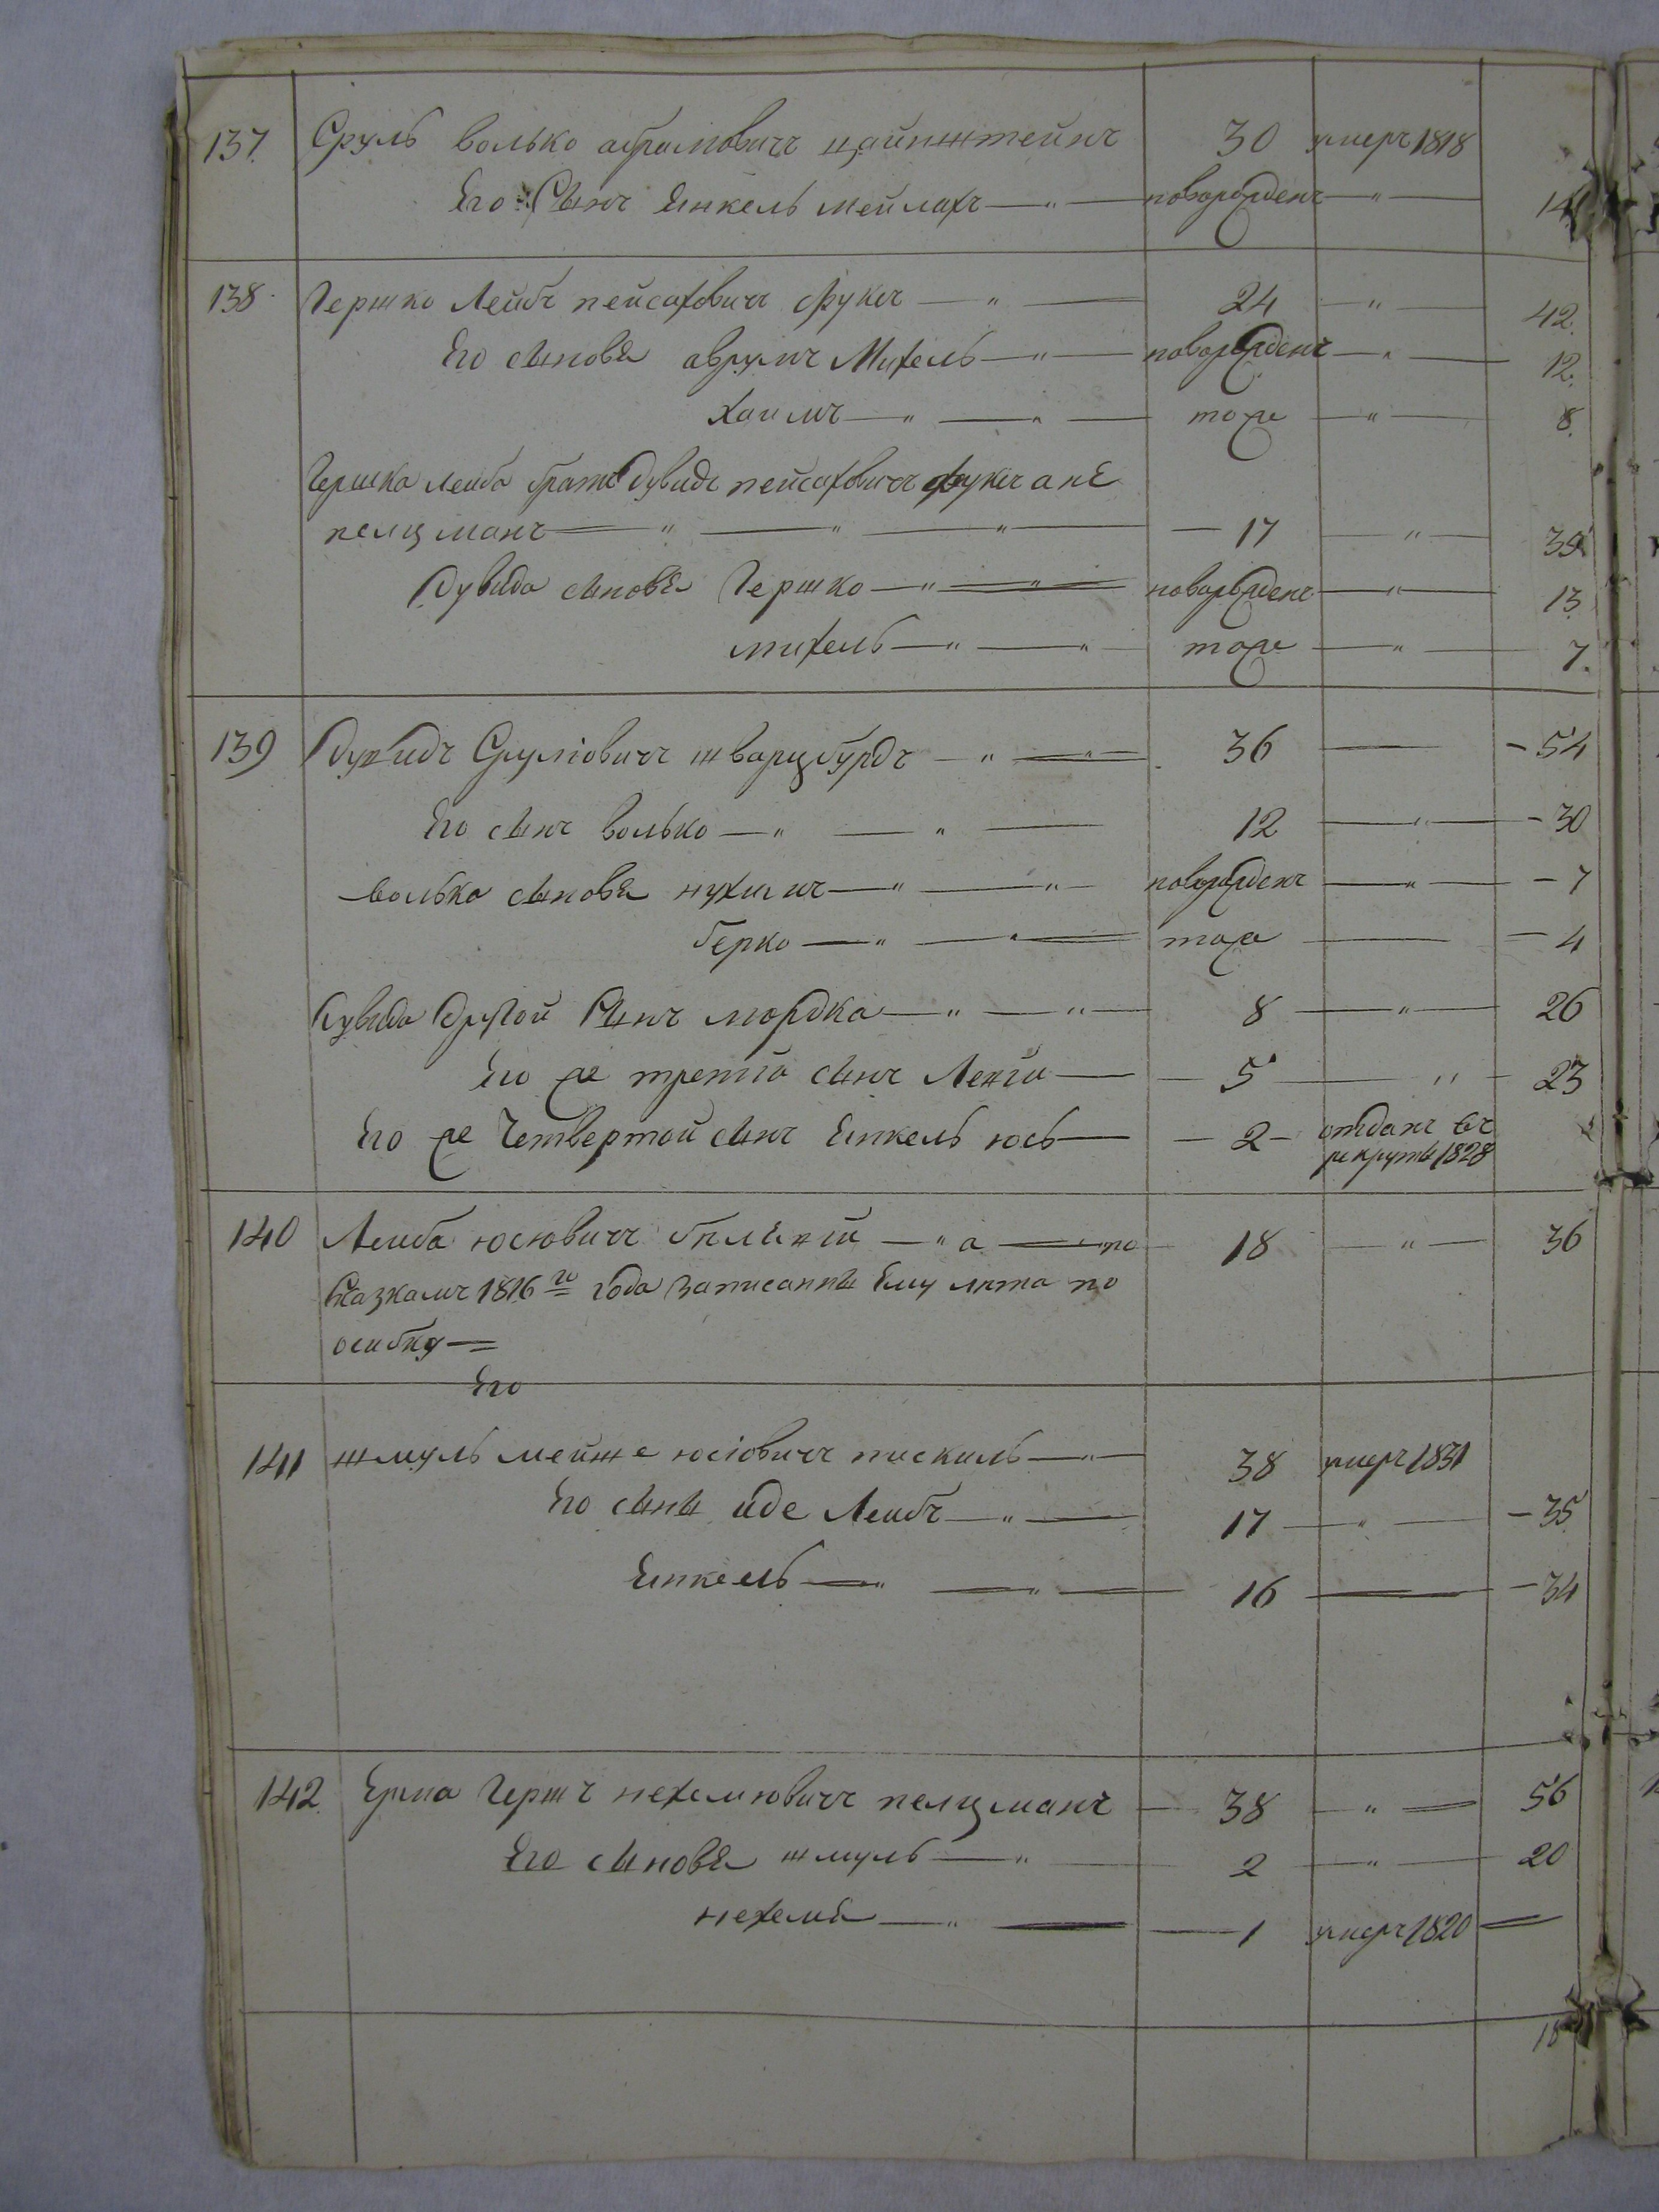 137. Сруль волько абрамовичъ цайнштейнъ 30 умеръ 1818
Его Сынъ Енкель мейлахъ — " — новорожденъ — " — 14
138. Гершко Лейбъ пейсаховичъ фуксъ — " — 24 — " — 42.
Его сыновья аврумъ Михель — " — новорожденъ — " — 12.
хаимъ — " — " — тоже — " — 8.
Гершка лейба братъ Дувидъ пейсаховичъ фуксъ а нѣ
пелцманъ — " — " — " — 17 — " — 35
Дувида сыновья Гершко — " — " — новорожденъ — " — 13
михель — " — " — тоже — " — 7.
139 Дувидъ Сруліовичъ шварцбурдъ — " — " — 36 — — 54
Его сынъ волько — " — " — 12 — " — 30
волька сыновья нухимъ — " — " — новорожденъ — " — 7
берко — " — " — тоже — — 4
Дувида Другой Сынъ мордка — " — " — 8 — " — 26
Его же третій сынъ — 5 — " — 23
Его же Четвертой сынъ Енкель юсь — 2 — отданъ въ
рекруты 1828
140 Лейба юсювичъ — " а — по 18 — " — 36
Сказкамъ 1816го года записанны Ему лѣта по
осибку —
Его
141 шмуль мейше юсіовичъ пискиль — " — 38 умеръ 1831
Его сыны иде Лейбъ — " — 17 — " — 35
Енкель — " — " — 16 — — 34
142. Ерма Гершъ нехемювичъ пелцманъ — 38 — " — 56
Его сыновья шмуль — " — 2 — " — 20
нехемья — " — 1 умеръ 1820 —